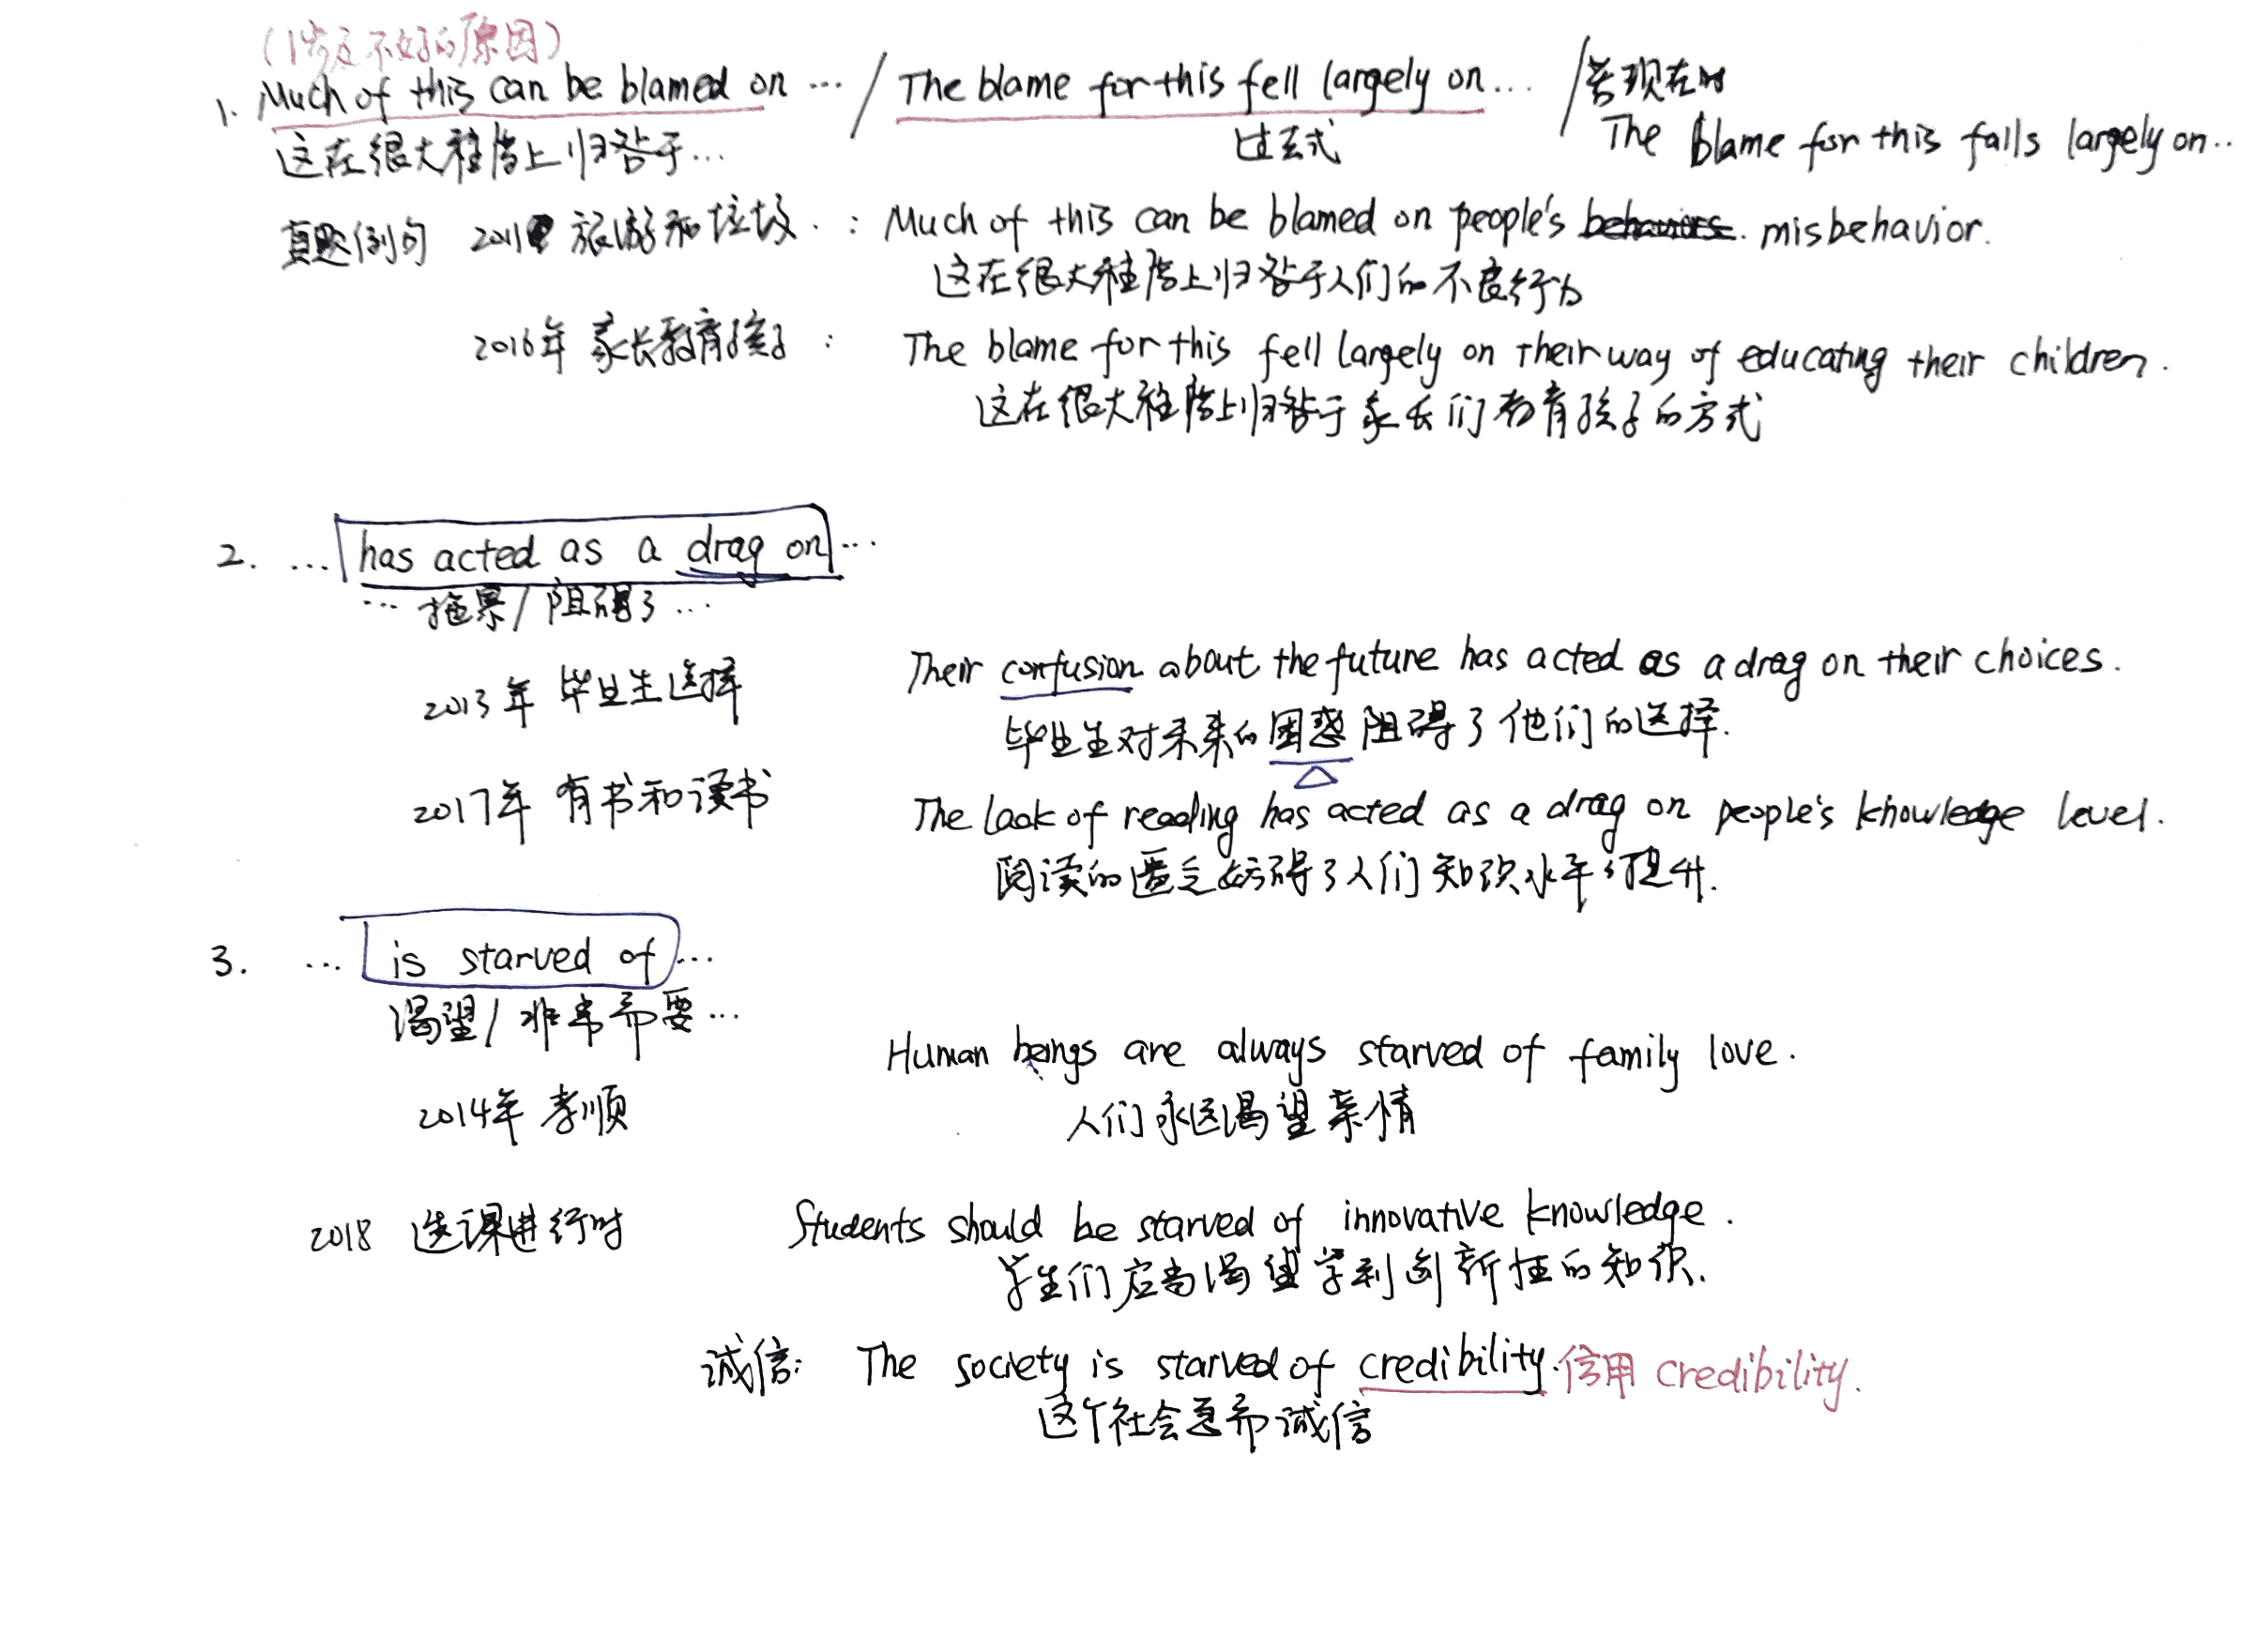 (描述不好的原因)
1. Much of this can be blamed on ... / The blame for this fell largely on ... / 若现在时
这在很大程度上归咎于... 过去式 The blame for this falls largely on ..
真题例句 2011 旅游和垃圾 : Much of this can be blamed on people's misbehavior.
这在很大程度上归咎于人们的不良行为
2016年 家长教育孩子 : The blame for this fell largely on their way of educating their children.
这在很大程度上归咎于家长们教育孩子的方式
2. ... has acted as a drag on ...
... 拖累/阻碍了 ...
2013年 毕业生选择 Their confusion about the future has acted as a drag on their choices.
毕业生对未来的困惑阻碍了他们的选择.
2017年 有书和读书 The lack of reading has acted as a drag on people's knowledge level.
阅读的匮乏妨碍了人们知识水平的提升.
3. ... is starved of ...
渴望/非常需要...
2014年 孝顺 Human beings are always starved of family love.
人们永远渴望亲情
2018 选课进行时 Students should be starved of innovative knowledge.
学生们应当渴望学到创新性的知识.
诚信: The society is starved of credibility. 信用 credibility.
这个社会急需诚信